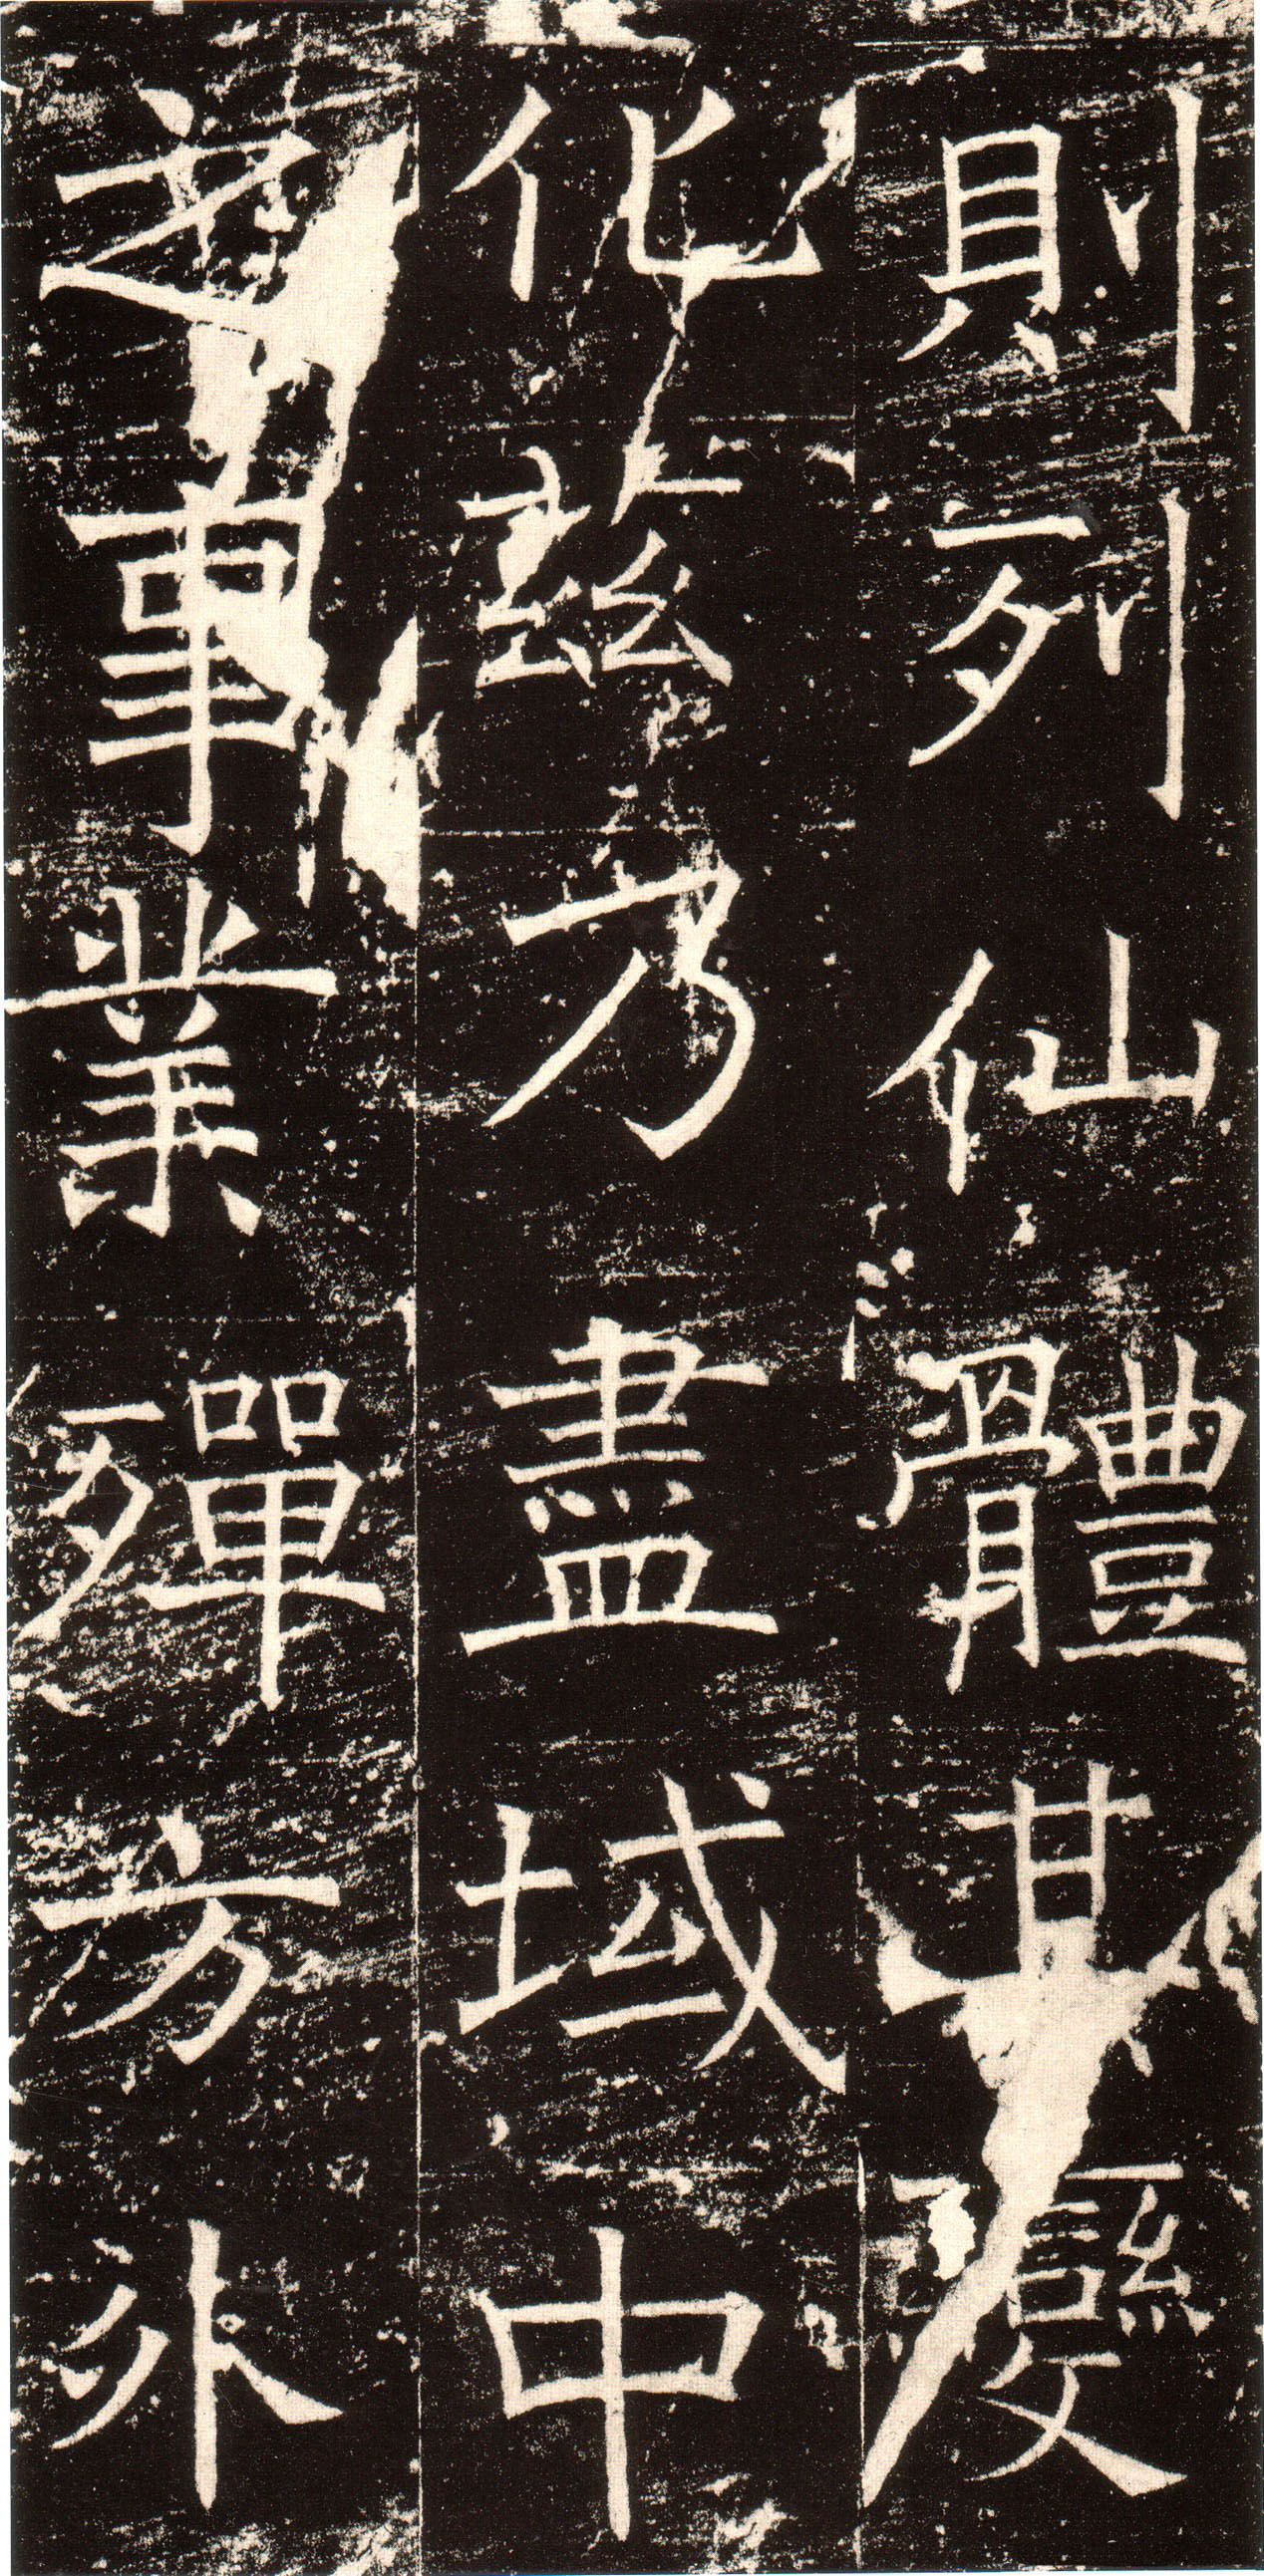 則列仙體其變
化茲乃盡域中
之事業殫方外